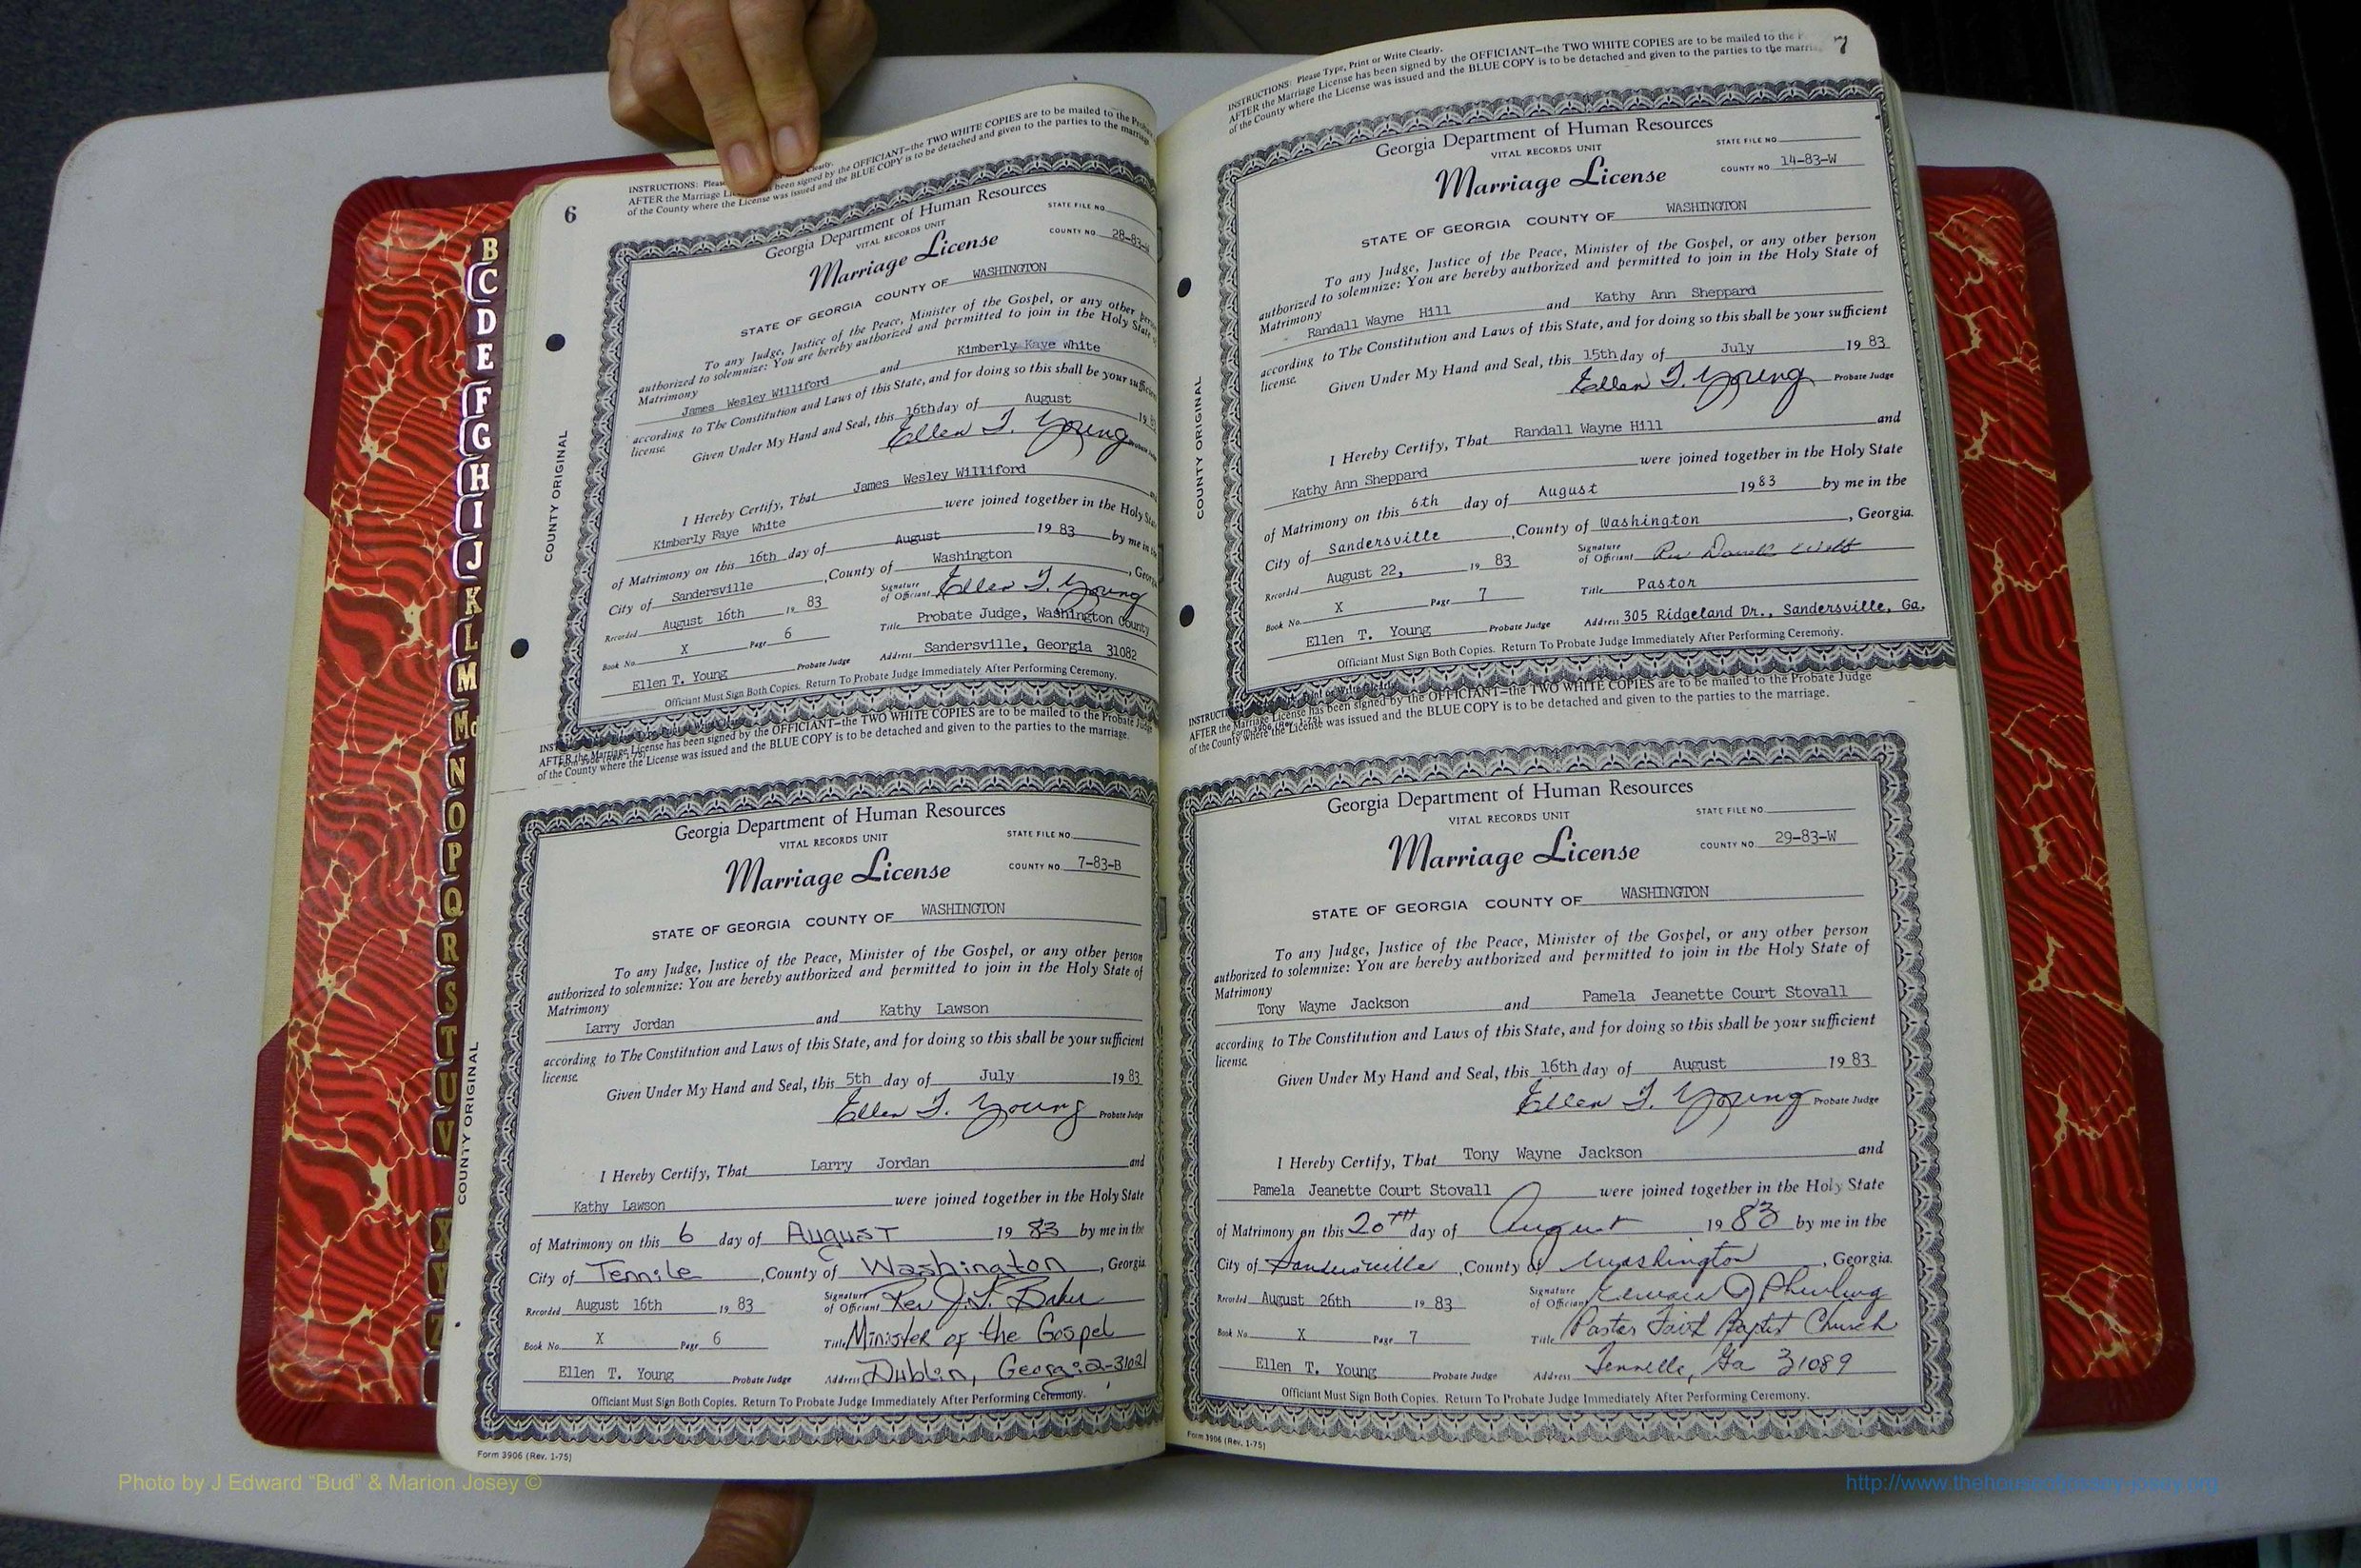 6
INSTRUCTIONS:
AFTER the Marriage been signed by the OFFICIANT—the TWO WHITE COPIES are to be mailed to the
of the County where the License was issued and the BLUE COPY is to be detached and given to the parties to the marriage
Georgia Department of Human Resources
VITAL RECORDS UNIT
STATE FILE NO.
Marriage License
COUNTY NO. 28-83-
STATE OF GEORGIA COUNTY OF WASHINGTON
To any Judge, Justice of the Peace, Minister of the Gospel, or any other
authorized to solemnize: You are hereby authorized and permitted to join in the Holy State
Matrimony James Wesley Williford and Kimberly Kaye White
according to The Constitution and Laws of this State, and for doing so this shall be your
license.
Given Under My Hand and Seal, this 16th day of August 19
Ellen T. Young
I Hereby Certify, That James Wesley Williford
Kimberly Faye White were joined together in the Holy
of Matrimony on this 16th day of August 19 83 by me in
City of Sandersville, County of Washington,
Recorded August 16th 19 83 Signature of Officiant Ellen T. Young
Book No. X Page 6 Title Probate Judge, Washington County
Ellen T. Young Probate Judge Address Sandersville, Georgia 31082
Officiant Must Sign Both Copies. Return To Probate Judge Immediately After Performing Ceremony.
COUNTY ORIGINAL
AFTER the Marriage License has been signed by the OFFICIANT—the TWO WHITE COPIES are to be mailed to the Probate
of the County where the License was issued and the BLUE COPY is to be detached and given to the parties to the marriage.
Georgia Department of Human Resources
VITAL RECORDS UNIT
STATE FILE NO.
Marriage License
COUNTY NO. 7-83-B
STATE OF GEORGIA COUNTY OF WASHINGTON
To any Judge, Justice of the Peace, Minister of the Gospel, or any other person
authorized to solemnize: You are hereby authorized and permitted to join in the Holy State of
Matrimony
Larry Jordan and Kathy Lawson
according to The Constitution and Laws of this State, and for doing so this shall be your sufficient
license.
Given Under My Hand and Seal, this 5th day of July 19 83
Ellen T. Young Probate Judge
I Hereby Certify, That Larry Jordan and
Kathy Lawson were joined together in the Holy State
of Matrimony on this 6 day of August 19 83 by me in the
City of Tennile, County of Washington, Georgia
Recorded August 16th 19 83 Signature of Officiant Rev J.L. Baker
Book No. X Page 6 Title Minister of the Gospel
Ellen T. Young Probate Judge Address Dublin, Georgia-31021
Officiant Must Sign Both Copies. Return To Probate Judge Immediately After Performing Ceremony.
Form 3906 (Rev. 1-75)
COUNTY ORIGINAL
7
INSTRUCTIONS: Please Type, Print or Write Clearly.
AFTER the Marriage License has been signed by the OFFICIANT—the TWO WHITE COPIES are to be mailed to the
of the County where the License was issued and the BLUE COPY is to be detached and given to the parties to the
Georgia Department of Human Resources
VITAL RECORDS UNIT
STATE FILE NO.
Marriage License
COUNTY NO. 14-83-W
STATE OF GEORGIA COUNTY OF WASHINGTON
To any Judge, Justice of the Peace, Minister of the Gospel, or any other person
authorized to solemnize: You are hereby authorized and permitted to join in the Holy State of
Matrimony Randall Wayne Hill and Kathy Ann Sheppard
according to The Constitution and Laws of this State, and for doing so this shall be your sufficient
license.
Given Under My Hand and Seal, this 15th day of July 19 83
Ellen T. Young Probate Judge
I Hereby Certify, That Randall Wayne Hill and
Kathy Ann Sheppard were joined together in the Holy State
of Matrimony on this 6th day of August 19 83 by me in the
City of Sandersville, County of Washington, Georgia.
Recorded August 22, 19 83 Signature of Officiant Rev
Book No. X Page 7 Title Pastor
Ellen T. Young Probate Judge Address 305 Ridgeland Dr., Sandersville, Ga.
Officiant Must Sign Both Copies. Return To Probate Judge Immediately After Performing Ceremony.
COUNTY ORIGINAL
AFTER the Marriage License has been signed by the OFFICIANT—the TWO WHITE COPIES are to be mailed to the Probate Judge
of the County where the License was issued and the BLUE COPY is to be detached and given to the parties to the marriage.
Georgia Department of Human Resources
VITAL RECORDS UNIT
STATE FILE NO.
Marriage License
COUNTY NO. 29-83-W
STATE OF GEORGIA COUNTY OF WASHINGTON
To any Judge, Justice of the Peace, Minister of the Gospel, or any other person
authorized to solemnize: You are hereby authorized and permitted to join in the Holy State of
Matrimony
Tony Wayne Jackson and Pamela Jeanette Court Stovall
according to The Constitution and Laws of this State, and for doing so this shall be your sufficient
license.
Given Under My Hand and Seal, this 16th day of August 19 83
Ellen T. Young Probate Judge
I Hereby Certify, That Tony Wayne Jackson and
Pamela Jeanette Court Stovall were joined together in the Holy State
of Matrimony on this 20TH day of August 19 83 by me in the
City of Sandersville, County of Washington, Georgia.
Recorded August 26th 19 83 Signature of Officiant
Book No. X Page 7 Title Pastor Faith Baptist Church
Ellen T. Young Probate Judge Address Tennille, Ga 31089
Officiant Must Sign Both Copies. Return To Probate Judge Immediately After Performing Ceremony.
Form 3906 (Rev. 1-75)
B
C
D
E
F
G
H
I
J
K
L
M
Mc
N
O
P
Q
R
S
T
U
V
X
Y
Z
Photo by J Edward "Bud" & Marion Josey ©